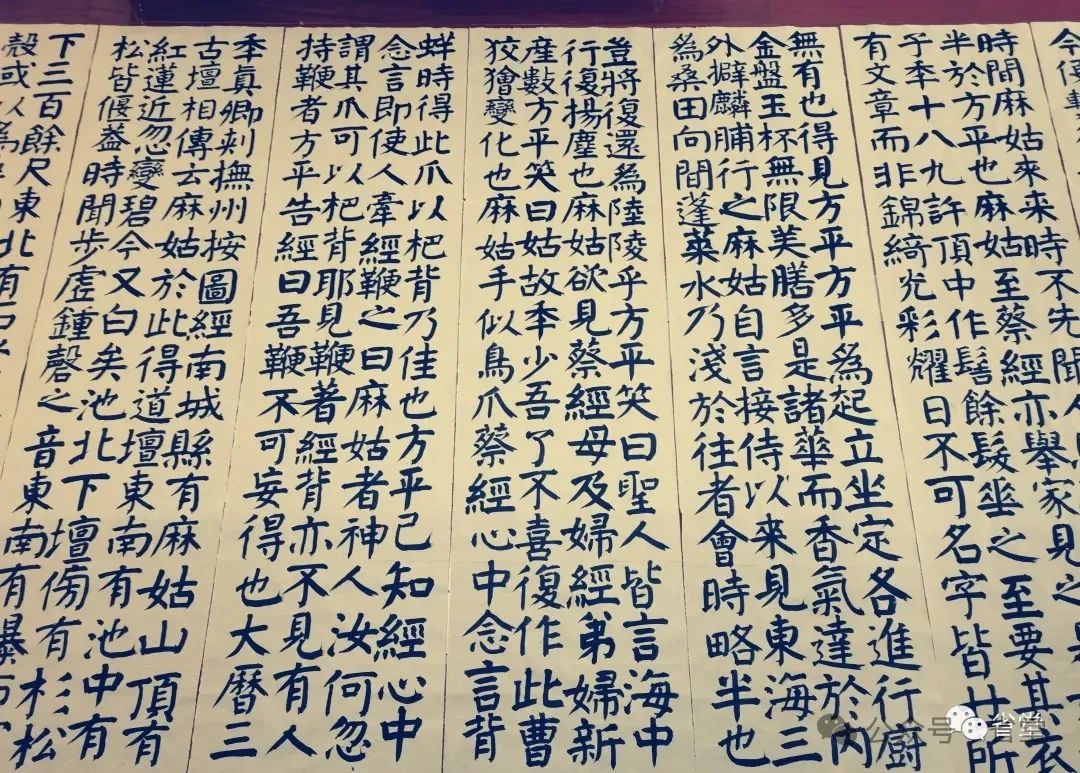 今便
時間麻姑來來時不先聞
半於方平也麻姑至蔡經亦舉家見之
子季十八九許頂中作髻餘髮垂之至要其衣
有文章而非錦綺光彩耀日不可名字皆世所
無有也得見方平方平為起立坐定各進行廚
金盤玉杯無限美膳多是諸華而香氣達於內
外擗麟脯行之麻姑自言接侍以來見東海三
為桑田向間蓬萊水乃淺於往者會時略半也
豈將復還為陸陵乎方平笑曰聖人皆言海中
行復揚塵也麻姑欲見蔡經母及婦經弟婦新
產數方平笑曰姑故季少吾了不喜復作此曹
狡獪變化也麻姑手似鳥爪蔡經心中念言背
蛘時得此爪以杷背乃佳也方平已知經心中
念言即使人牽經鞭之曰麻姑者神人汝何忽
謂其爪可以杷背耶見鞭著經背亦不見有人
持鞭者方平告經曰吾鞭不可妄得也大曆三
季真卿刺撫州按圖經南城縣有麻姑山頂有
古壇相傳云麻姑於此得道壇東南有池中有
紅蓮近忽變碧今又白矣池北下壇傍有杉松
松皆偃蓋時聞步虛鍾磬之音東南有瀑布
下三百餘尺東北有石
殼或以為
公众号 省堂